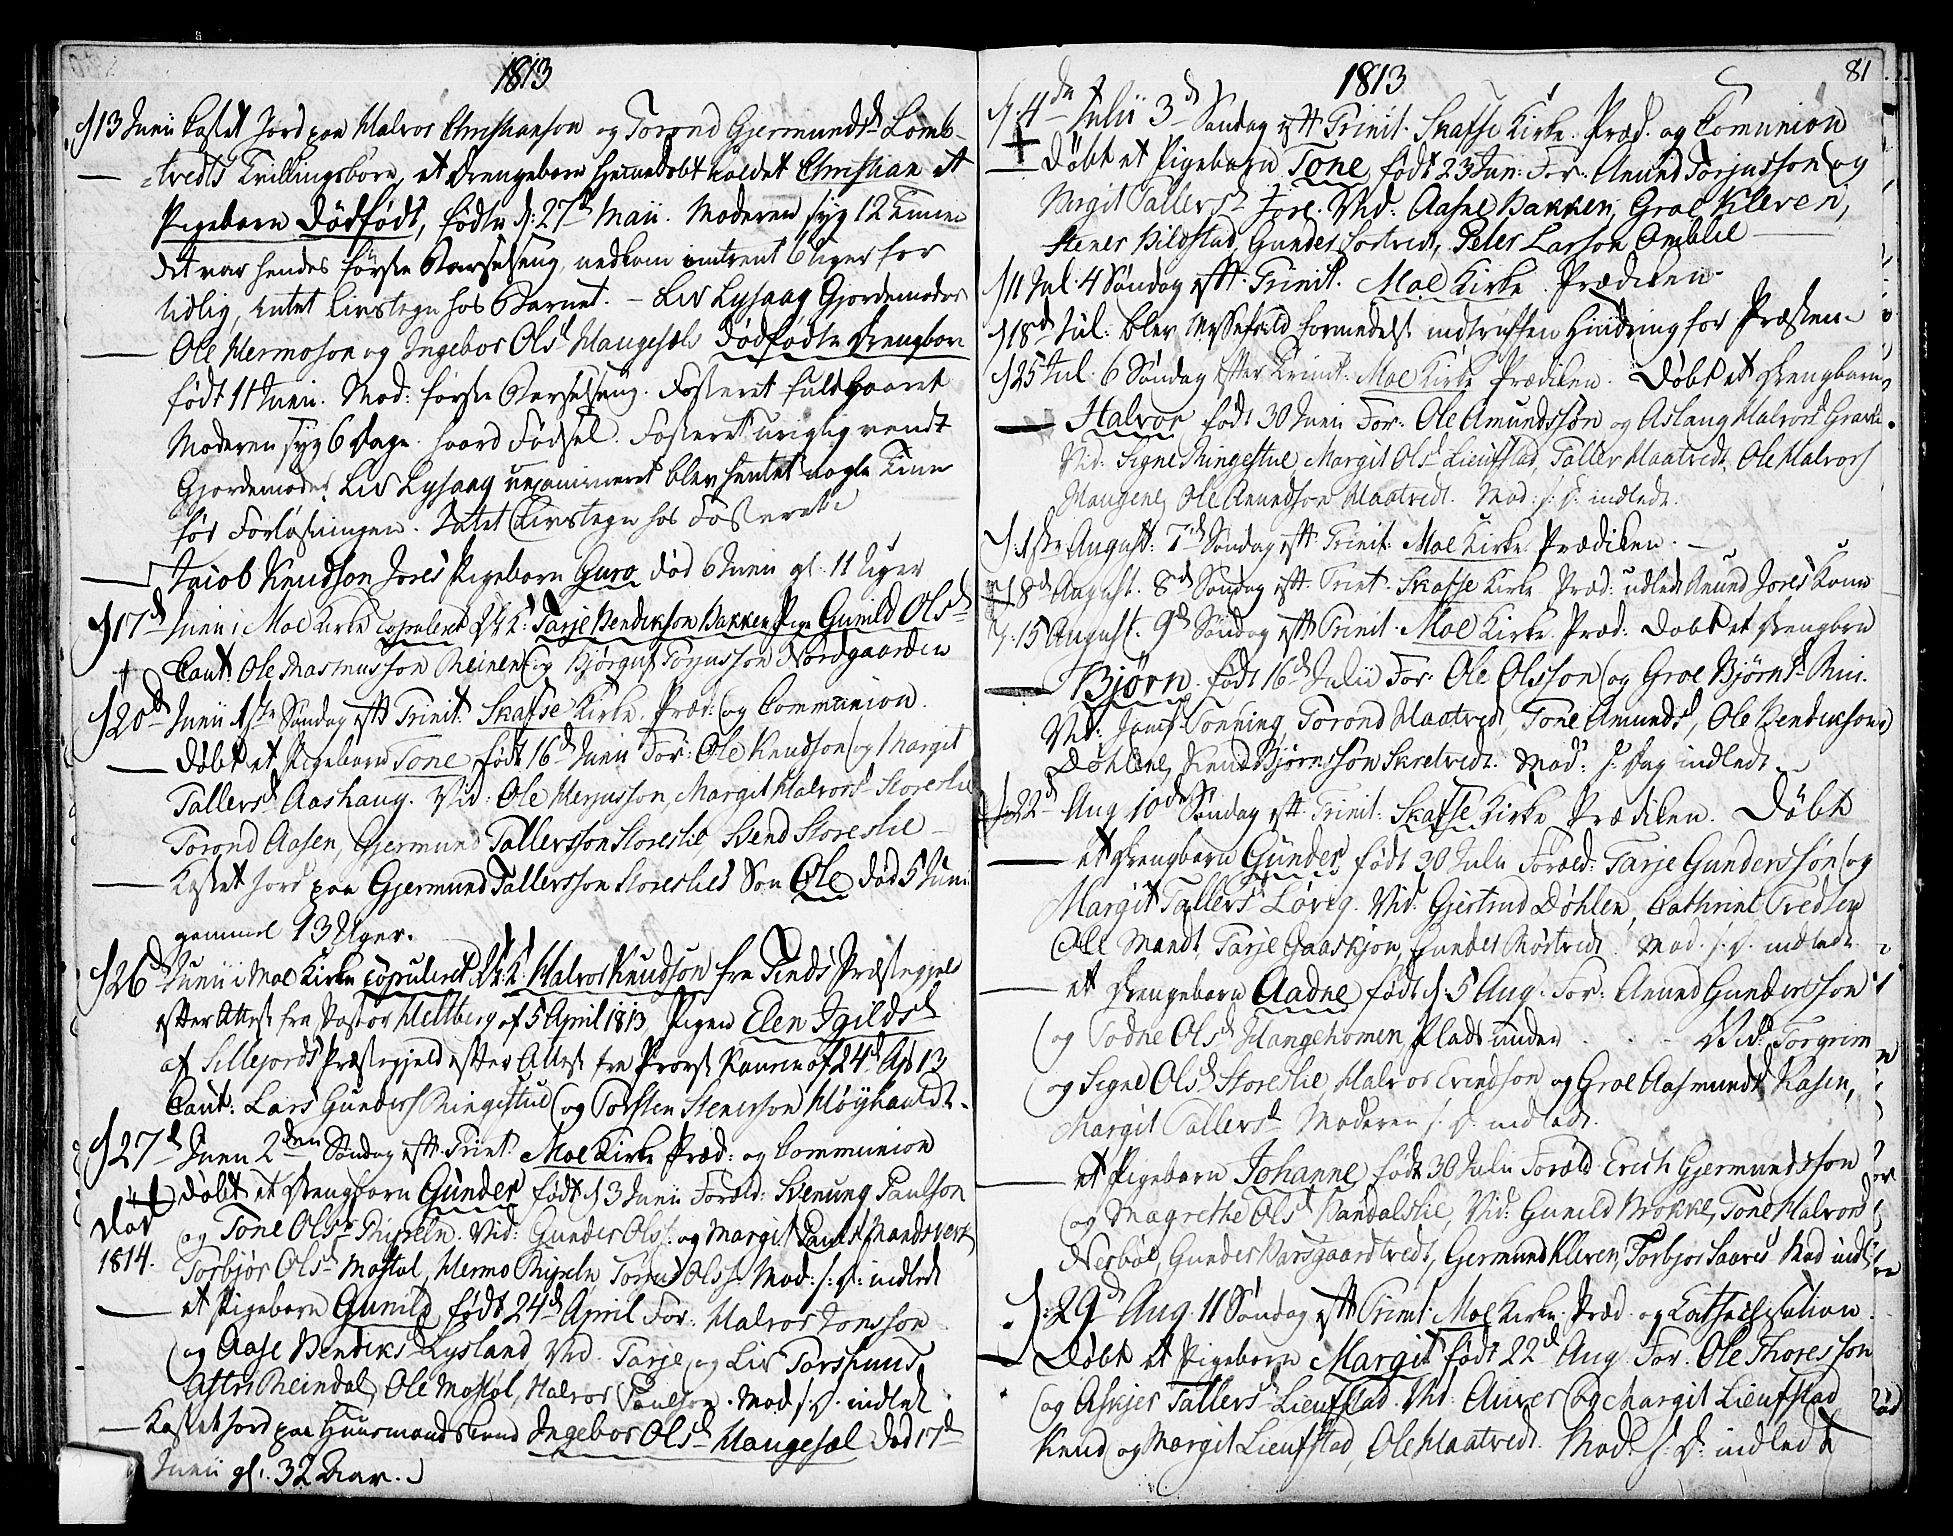 1813
d 13 Junii Castet Jord paa Halvor Christianson og Torond Gjermundsd Lomb-
tvedts Tvillingsbørn, et Drengebarn hjemmedøbt kaldet Christian et
Pigebarn dødfødt, fødte d: 27d Maii. Moderen syg 12 Timer
det var hendes første Barselseng, nedkom omtrent 6 Uger for
tidlig, intet Livstegn hos Barnet. – Liv Lysaag Gjordemoder
Ole Hermoson og Ingebor Olsd Haugesæls dødfødte Drengbarn
født 11 Junii. Mod: første Barselseng. Fosteret fuldbaaret
Moderen syg 6 Dage. haard Fødsel. Fosteret urigtig vendt
Gjordemoder Liv Lysaag uexamineret blev hentet nogle Timer
før Forløsningen. Intet Livstegn hos Fosteret.
Jacob Knudson Jores Pigebarn Guro død 6 Junii gl. 11 Uger
d 17d Junii i Moe Kirke Copuleret Tarje Bendikson Bakken Pige Gunild Olsd
Caut: Ole Rasmusson Reinen og Bjørguf Torjusson Nordgaarden
d 20d Junii 1ste Søndag eft Trinit: Skafse Kirke Præd: og Communion.
Døbt et Pigebarn Tone født 16d Junii For: Ole Knudson og Margit
Tallersd Aashaug. Vid: Ole Herjusson, Margit Halvorsd Storeslie
Torond Aasen, Gjermund Tallersson Storeslie, Svend Storeslie
Kastet Jord paa Gjermund Tallersson Storeslies Søn Ole død 5 Juni
gammel 13 Uger.
d 26d Junii i Moe Kirke copuleret Halvor Knudson fra Tinds Præstegjeld
efter Attest fra Pastor Hellberg af 5 April 1813, Pigen Elen Igildsd
af Sillejords Præstegjeld efter Attest fra Provst af 24d Apr 13
Caut: Lars Gunders Ringestue og Torsten Stenerson
d 27d Junii 2den Søndag eft Trint. Moe Kirke Præd: og Communion
døbt et Drengbarn Gunder født d 3 Junii Foræld: Svenung Paulson
død
1814.
og Tone Olsd Vid: Gunder Ols. og Margit
Torbjør Olsd Mostøl, Hermo Torjus Ols. Mod: s: D: indledt
et Pigebarn Gunild født 24d April For: Halvor Jonsson
og Aase Bendiksd Lysland Vid. Tarje og Liv
Astri Reindal, Ole Mostøl, Halvor Paulson. Mod s: D. indledt
Kastet Jord paa Huusmandskone Ingebor Olsd Haugesæl død 17d
Junii gl. 32 Aar.
1813
81
d: 4de Julii 3d Søndag eft Trinit. Skafse Kirke. Præd. og Comunion
Døbt et Pigebarn Tone født 23 Jun: For: Anund Torjusson og
Birgit Tallersd Jore. Vid: Aasne Bakken, Groe Kleven,
Stener Bildstad, Gunder, Peter Larson Omblie
d 11 Jul. 4 Søndag eft Trinit. Moe Kirke. Prædiken
d 18d Jul: blev Messefald formedelst indtruffen Hindring for Præsten
d 25 Jul: 6 Søndag efter Trinit. Moe Kirke Prædiken. Døbt et Drengbarn
Halvor født 30 Junii For: Ole Amundssøn og Aslaug Halvorsd
Vid: Signe Ringestue, Margit Olsd Lieufstad, Taller Haatvedt, Ole Halvors
Haugene, Ole Anundson Haatvedt. Mod: s: D. indledt.
d: 1ste August. 7d Søndag eft Trinit: Moe Kirke Prædiken. –
d 8d August. 8d Søndag eft Trint. Skafse Kirke Præd: indledt Anund Jores Kone
d. 15 August. 9d Søndag eft Trinit. Moe Kirke Præd: Døbt et Drengbarn
Bjørn født 16d Julii For: Ole Olsson og Groe Bjørnsd
Vid: Tonning, Torond Haatvedt, Tone Amundsd, Ole Bendikson
Døhlene, Knud Bjørnsson Skretvedt. Mod: s: Dag indledt
d 22d Aug 10de Søndag eft Trinit: Skafse Kirke Prædiken. Døbt
et Drengbarn Gunder født 30 Julii Foræld: Tarje Gundersøn og
Margit Tallersd Vid: Gjertrud Døhlen, Cathrine Tredsen
Ole Mandt, Tarje Gaaskjøn, Gunder Mod. s. D. indledt
et Drengebarn Aadne født d. 5 Aug. For: Anund Gundersson
og Todne Olsd Plads under . . - Vid: Torgrim
og Signe Olsd Storeslie Halvor Evindson og Groe Aasmundsd Kasen,
Margit Tallersd Moderen s. D. indledt.
et Pigebarn Johanne født 30 Julii Foræld: Erich Gjermundsson
og Magrethe Olsd Vid: Gunild Brokke, Tone Halvorsd
Nesbøe, Gunder, Gjermund Kleven, Torbjør Saares Mod indl:
d: 29d Aug. 11 Søndag eft Trinit. Moe Kirke. Præd og Cathechisation
Døbt et Pigebarn Margit født 22d Aug. For. Ole Thoresson
og Askjer Tallersd Lieufstad. Vid: og Margit Lieufstad
Knud og Margit Lieufstad, Ole Haatvedt. Mod. s. D: indledt